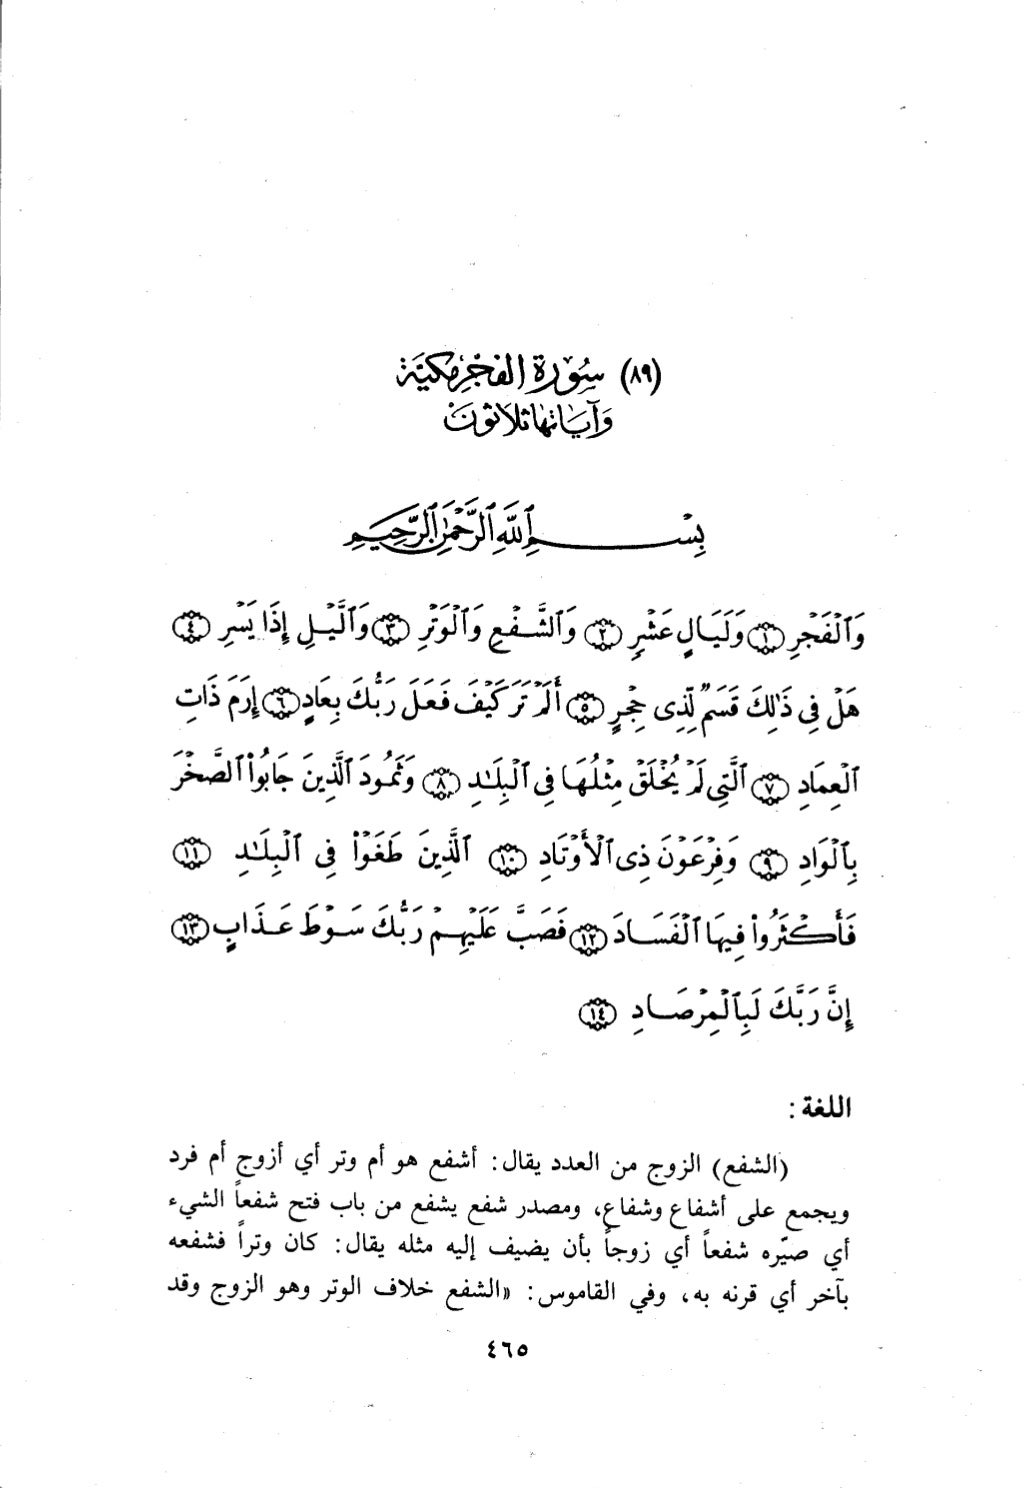 (٨٩) سُوْرَة الفَجْرِ مَكيَّة
وَآيَاتهَا ثلَاثُونَ
بِسْمِ ٱللَّهِ ٱلرَّحْمَٰنِ ٱلرَّحِيمِ
وَٱلْفَجْرِ ١ وَلَيَالٍ عَشْرٍ ٢ وَٱلشَّفْعِ وَٱلْوَتْرِ ٣ وَٱلَّيْلِ إِذَا يَسْرِ ٤
هَلْ فِى ذَٰلِكَ قَسَمٌ لِّذِى حِجْرٍ ٥ أَلَمْ تَرَ كَيْفَ فَعَلَ رَبُّكَ بِعَادٍ ٦ إِرَمَ ذَاتِ
ٱلْعِمَادِ ٧ ٱلَّتِى لَمْ يُخْلَقْ مِثْلُهَا فِى ٱلْبِلَٰدِ ٨ وَثَمُودَ ٱلَّذِينَ جَابُوا۟ ٱلصَّخْرَ
بِٱلْوَادِ ٩ وَفِرْعَوْنَ ذِى ٱلْأَوْتَادِ ١٠ ٱلَّذِينَ طَغَوْا۟ فِى ٱلْبِلَٰدِ ١١
فَأَكْثَرُوا۟ فِيهَا ٱلْفَسَادَ ١٢ فَصَبَّ عَلَيْهِمْ رَبُّكَ سَوْطَ عَذَابٍ ١٣
إِنَّ رَبَّكَ لَبِٱلْمِرْصَادِ ١٤
اللغة :
(الشفع) الزوج من العدد يقال: أشفع هو أم وتر أي أزوج أم فرد
ويجمع على أشفاع وشفاع، ومصدر شفع يشفع من باب فتح شفعاً الشيء
أي صيّره شفعاً أي زوجاً بأن يضيف إليه مثله يقال: كان وتراً فشفعه
بآخر أي قرنه به، وفي القاموس: «الشفع خلاف الوتر وهو الزوج وقد
٤٦٥